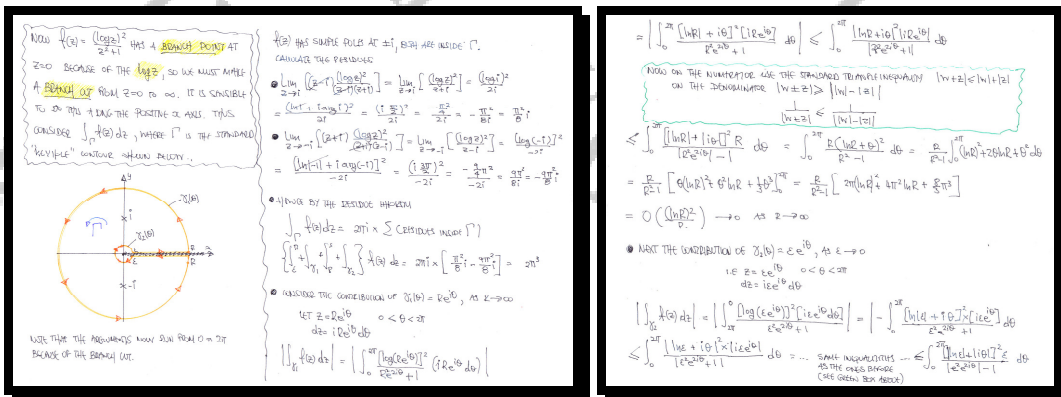 NOW f(z) = (logz)²/(z²+1) HAS A BRANCH POINT AT
z=0 BECAUSE OF THE logz, SO WE MUST MAKE
A BRANCH CUT FROM z=0 TO ∞. IT IS SENSIBLE
TO DO THIS ALONG THE POSITIVE x AXIS. THUS
CONSIDER ∫_Γ f(z) dz, WHERE Γ IS THE STANDARD
"KEYHOLE" CONTOUR SHOWN BELOW.
y
γ₁(θ)
Γ
i
γ₂(θ)
ε
R
R
x
-i
NOTE THAT THE ARGUMENTS NOW RUN FROM 0 TO 2π
BECAUSE OF THE BRANCH CUT.
f(z) HAS SIMPLE POLES AT ±i, BOTH ARE INSIDE Γ.
CALCULATE THE RESIDUES
● Lim z→i [(z-i) (logz)²/((z-i)(z+i))] = Lim z→i [(logz)²/(z+i)] = (logi)²/2i
= (ln1 + i argi)²/2i = (i π/2)²/2i = (-π²/4)/2i = -π²/8i = π²/8 i
● Lim z→-i [(z+i) (logz)²/((z+i)(z-i))] = Lim z→-i [(logz)²/(z-i)] = (log(-i))²/-2i
= (ln|-i| + i arg(-i))²/-2i = (i 3π/2)²/-2i = (-9/4 π²)/-2i = 9π²/8i = -9π²/8 i
● HENCE BY THE RESIDUE THEOREM
∫_Γ f(z) dz = 2πi × Σ (RESIDUES INSIDE Γ)
f(z) dz = 2πi × [π²/8 i - 9π²/8 i] = 2π³
● CONSIDER THE CONTRIBUTION OF γ₁(θ) = Re^iθ, AS R→∞
LET z = Re^iθ 0 < θ < 2π
dz = iRe^iθ dθ
|∫_γ₁ f(z) dz| = |∫₀^2π [log(Re^iθ)]²/(R²e^2iθ + 1) (iRe^iθ dθ)|
= |∫₀^2π [ln|R| + iθ]² [iRe^iθ]/(R²e^2iθ + 1) dθ| ≤ ∫₀^2π |lnR + iθ|² |iRe^iθ|/|R²e^2iθ + 1| dθ
NOW ON THE NUMERATOR USE THE STANDARD TRIANGLE INEQUALITY |w+z| ≤ |w|+|z|
ON THE DENOMINATOR |w±z| ≥ ||w|-|z||
1/|w±z| ≤ 1/||w|-|z||
≤ ∫₀^2π [|lnR| + |iθ|]² R/(|R²e^2iθ| - 1) dθ = ∫₀^2π R(lnR + θ)²/(R² - 1) dθ = R/(R²-1) ∫₀^2π (lnR)² + 2θlnR + θ² dθ
= R/(R²-1) [θ(lnR)² + θ²lnR + ⅓θ³]₀^2π = R/(R²-1) [2π(lnR)² + 4π²lnR + 8/3 π³]
= O((lnR)²/R) → 0 AS R→∞
● NEXT THE CONTRIBUTION OF γ₂(θ) = εe^iθ, AS ε→0
I.E z = εe^iθ 0 < θ < 2π
dz = iεe^iθ dθ
|∫_γ₂ f(z) dz| = |∫_2π^0 [log(εe^iθ)]² [iεe^iθ dθ]/(ε²e^2iθ + 1)| = |-∫₀^2π [ln|ε| + iθ]² × [iεe^iθ]/(ε²e^2iθ + 1) dθ|
≤ ∫₀^2π |lnε + iθ|² × |iεe^iθ|/|ε²e^2iθ + 1| dθ = .... SAME INEQUALITIES ... ≤ ∫₀^2π [|lnε| + |iθ|]² ε/||ε²e^2iθ| - 1| dθ
AS THE ONES BEFORE
(SEE GREEN BOX ABOVE)